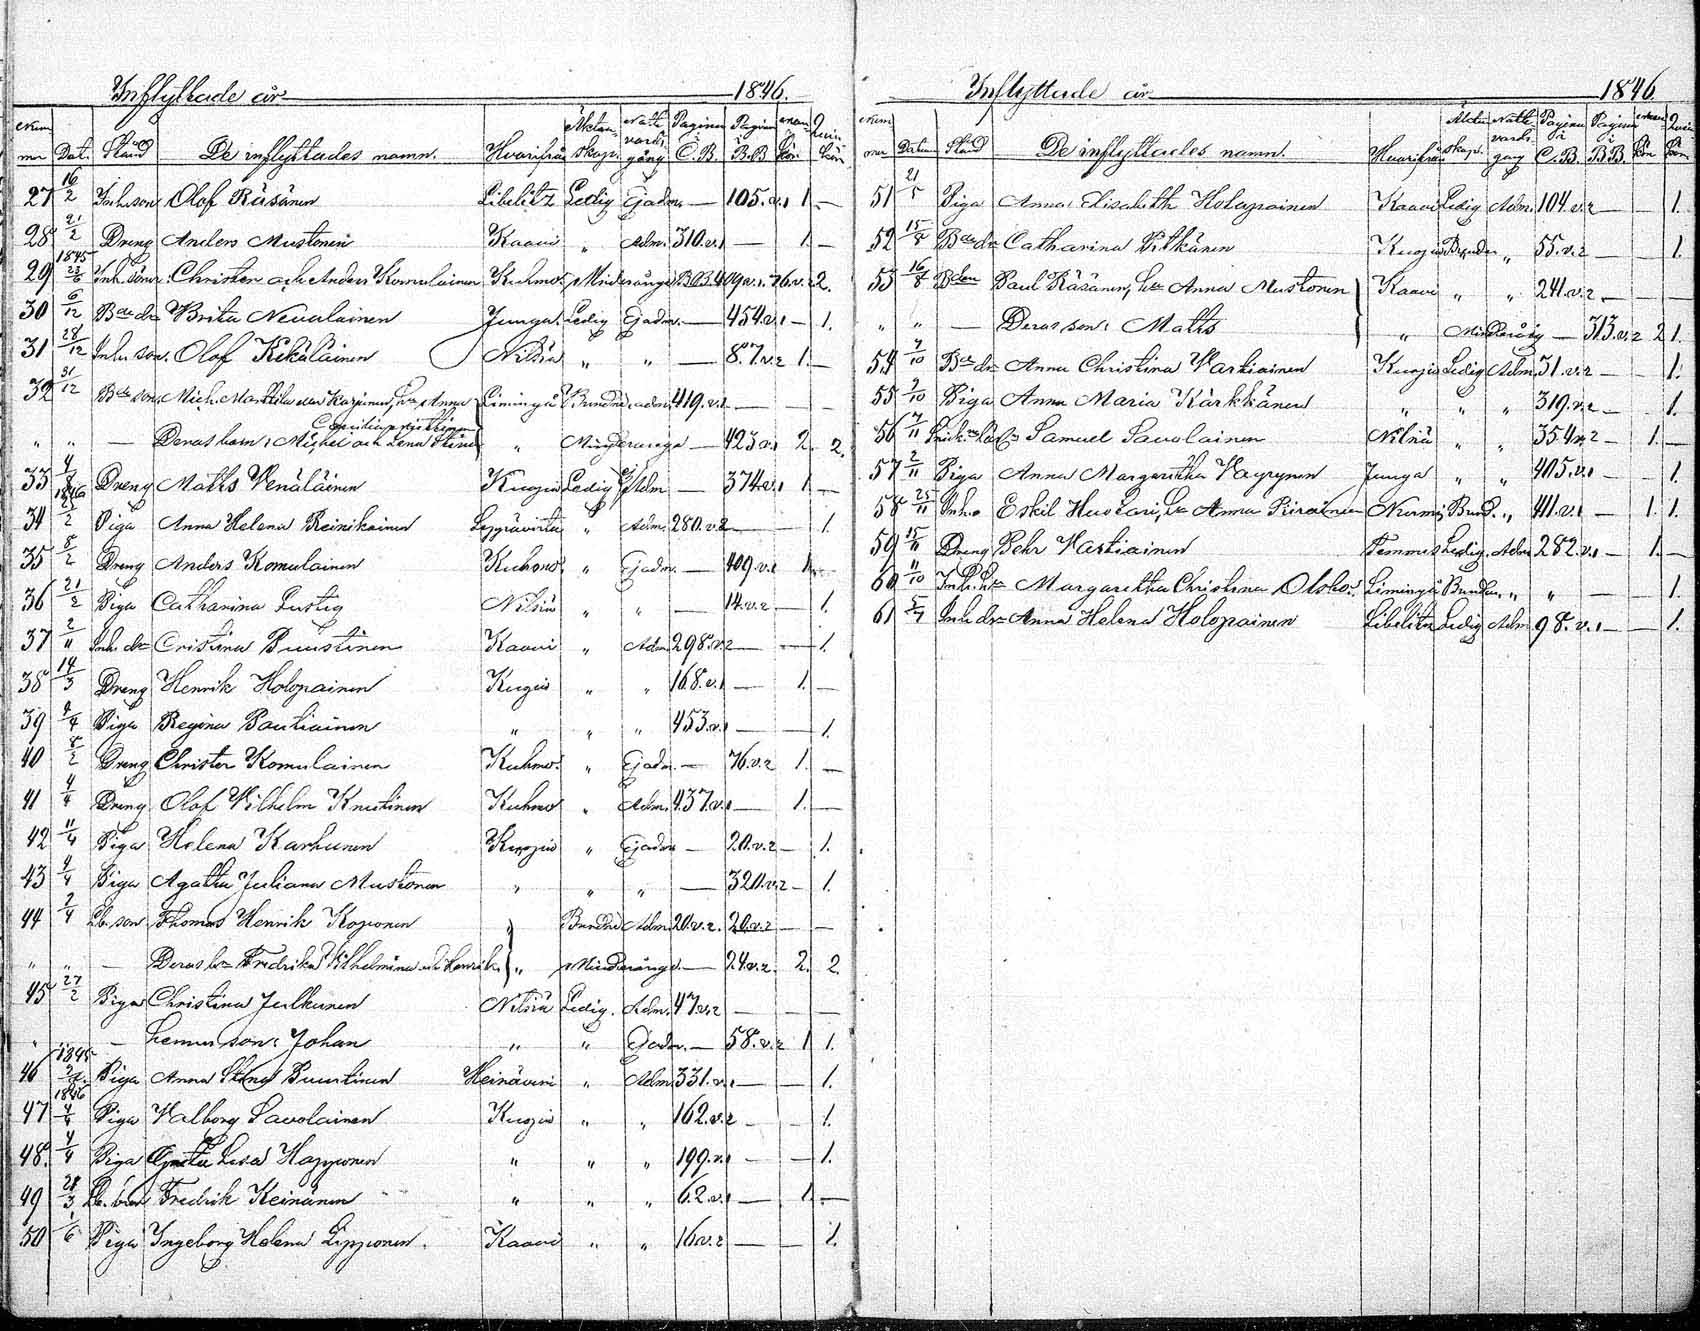 Inflyttade år 1846.
Num mer Dat. Stånd De inflyttades namn. Hvarifrån Äkten skap. Natt vards gång Pagina i C.B. Pagina i B.B. man kön Qvin kön
27 16/2 Inh. son Olof Räsänen Libelitz Ledig Ej adm. — 105.v.1 1. —
28 21/2 Dreng Anders Mustonen Kaavi " Adm. 310.v.1 — 1. —
1845
29 23/6 Inh. söner Christer och Anders Komulainen Kuhmo. Minderåriga B.B. 409.v.1. 76.v.2 2.
30 6/12 Bde dr Brita Nevalainen Juuga. Ledig Ej adm. — 454.v.1 — 1.
31 28/12 Inh. son. Olof Kekäläinen Nilsiä " " — 87.v.2 1. —
32 31/12 Bde son. Mich. Mattila eller Karjainen, hu Anna Limingå Bundne adm. 419.v.1 — — —
" " — Deras barn: Michel och Lena Stina " Minderåriga — 423.v.1 2. 2.
33 4/8 Dreng Matts Venäläinen Kuopio Ledig Ej Adm — 374.v.1 1. —
1846
34 22/2 Piga Anna Helena Reinikainen Leppävirta " Adm. 280.v.2 — 1.
35 8/2 Dreng Anders Komulainen Kuhmo. " Ej adm. — 409.v.1 1. —
36 21/2 Piga Catharina Lustig Nilsiä " " — 14.v.2 — 1.
37 2/11 Inh. dr Cristina Puustinen Kaavi " Adm. 298.v.2 — — 1.
38 14/3 Dreng Henrik Holopainen Kuopio " " 168.v.1 — 1. —
39 4/4 Piga Regina Pautiainen " " " 453.v.1 — — 1.
40 8/2 Dreng Christer Komulainen Kuhmo. " Ej adm. — 76.v.2 1. —
41 4/4 Dreng Olof Wilhelm Knutinen Kuhmo " Adm. 437.v.1 — 1. —
42 11/4 Piga Helena Karhunen Kuopio " Ej adm — 20.v.2 — 1.
43 4/4 Piga Agatha Juliana Mustonen " " " — 320.v.2 — 1.
44 2/4 Lb. son. Thomas Henrik Koponen " Bundne Adm. 20.v.2. 20.v.2 — —
" " — Deras bn Fredrika Wilhelmina och Henrik. " Minderåriga. — 24.v.2. 2. 2
45 27/2 Piga Christina Julkunen Nilsiä Ledig. Adm. 47.v.2 — — —
" — hennes son: Johan " " Ej adm. — 58.v.2 1 1.
1845
46 Piga Anna Stina Puustinen Heinävesi " Adm. 331.v.1 — — 1.
1846
47 4/4 Piga Valborg Savolainen Kuopio " " 162.v.2 — — 1.
48. 4/4 Piga Greta Lisa Happonen " " " 199.v.1 — — 1.
49 28/3 Fredrik Keinänen " " " 62.v.1 — 1. —
50 1/6 Piga Ingeborg Helena Lipponen. Kaavi " " 16.v.2 — — 1.
Inflyttade år 1846.
Num mer Datum Stånd De inflyttades namn. Hvarifrån Äkten skap. Natt vards gång Pagina i C.B. Pagina i BB. man kön Qvin kön
51 21/5 Piga Anna Elisabeth Holopainen Kaavi Ledig Adm. 104.v.2 — — 1.
52 15/5 Bde dr Catharina Pitkänen Kuopio Bunden " 55.v.2 — — 1.
53 16/8 Bden Paul Räsänen, hu Anna Mustonen Kaavi " " 241.v.2 — — —
" " — Deras son: Matts " Minderårig — 313.v.2 2 1.
54 4/10 Bde dr Anna Christina Wartiainen Kuopio Ledig Adm. 31.v.2 — — 1.
55 2/10 Piga Anna Maria Kärkkänen " " " 319.v.2 — — 1.
56 7/11 Samuel Savolainen Nilsiä " " 354.v.2 — 1. —
57 2/11 Piga Anna Margaretha Väyrynen Juuga " " 405.v.1 — — 1.
58 25/11 Inh. Eskil Huskari, hu Anna Piirainen Nurmis Bund. " 411.v.1 — 1. 1.
59 15/11 Dreng Pehr Wartiainen Ledig. Adm. 282.v.1 — 1. —
60 11/10 Inh. hu Margaretha Christina Limingå Bunden " " — — 1.
61 5/7 Inh. dr Anna Helena Holopainen Libelitz Ledig Adm. 98.v.1 — — 1.